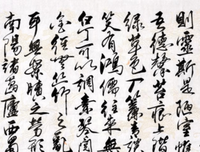 則靈斯是陋室惟
吾德馨苔痕上階
綠草色入簾青談
笑有鴻儒往來無
白丁可以調素琴閱
金經無絲竹之亂
耳無案牘之勞形
南陽諸葛廬西蜀